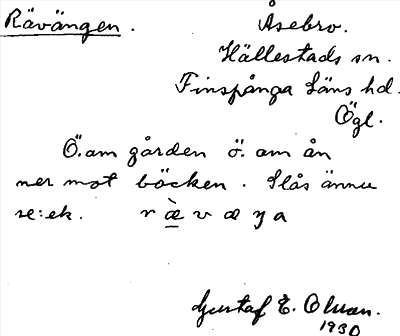 Rävängen. Åsebro.
Hällestads sn.
Finspånga läns hd.
Ögl.
Ö. om gården ö. om ån
ner mot böcken. Slås ännu
se: ek. r æ̀ v æ ŋ a
Gustaf E. Olson.
1930